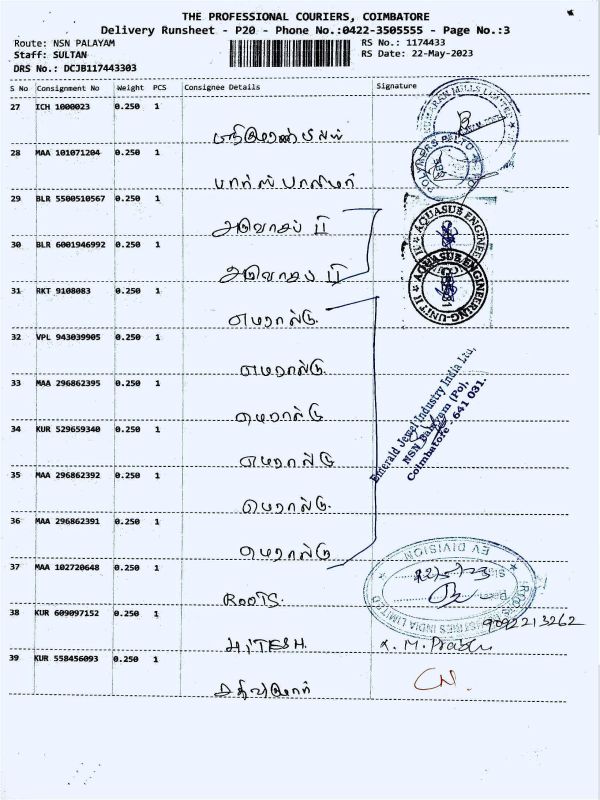 THE PROFESSIONAL COURIERS, COIMBATORE
Delivery Runsheet - P20 - Phone No.:0422-3505555 - Page No.:3
Route: NSN PALAYAM
Staff: SULTAN
DRS No.: DCJB117443303
RS No.: 1174433
RS Date: 22-May-2023
S No Consignment No Weight PCS Consignee Details Signature
27 ICH 1000023 0.250 1
28 MAA 101071204 0.250 1
29 BLR 5500510567 0.250 1
அக்வாசப் II
30 BLR 6001946992 0.250 1
அக்வாசப் II
AQUASUB ENGINEERING-UNIT II
31 RKT 9108083 0.250 1
எமரால்டு.
32 VPL 943039905 0.250 1
எமரால்டு.
33 MAA 296862395 0.250 1
எமரால்டு
34 KUR 529659340 0.250 1
எமரால்டு
Emerald Jewel Industry India Ltd,
NSN Palayam (Po),
Coimbatore - 641 031.
35 MAA 296862392 0.250 1
எமரால்டு.
36 MAA 296862391 0.250 1
எமரால்டு
37 MAA 102720648 0.250 1
ROOTS.
ROOTS INDUSTRIES INDIA LIMITED
EV DIVISION
22/5/23
38 KUR 609097152 0.250 1
HITESH.
9092213262
K. M. Prabhu
39 KUR 558456093 0.250 1